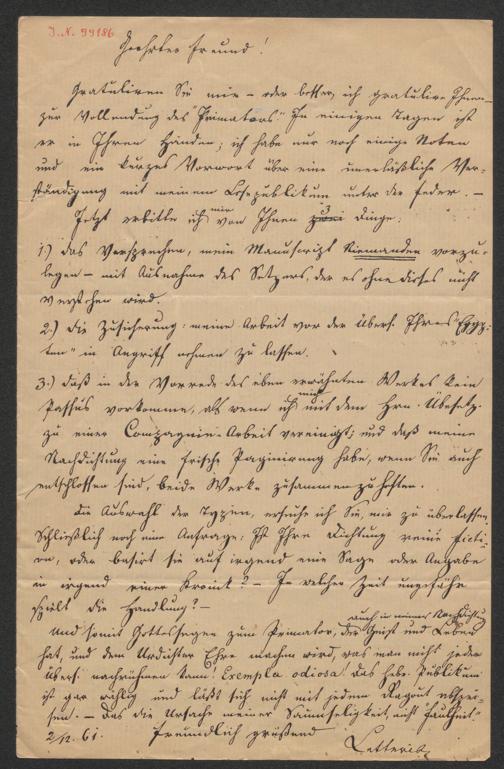 I. N. 99186
Geehrter Freund!
Gratuliren Sie mir – oder besser, ich gratulire Ihnen –
zur Vollendung des "Primators". In einigen Tagen ist
er in Ihren Händen; ich habe nur noch einige Noten
und ein kurzes Vorwort über eine unerläßliche Ver-
ständigung mit meinem Lesepublikum unter der Feder. –
Jetzt erbitte ich mir von Ihnen zwei 3 Dinge:
1.) Das Versprechen, mein Manuscript Niemanden vorzu-
legen – mit Ausnahme des Setzers, der es ohne dieses nicht
verstehen wird.
2.) Die Zusicherung: meine Arbeit vor der Übers. Ihres "Egyp-
ten" in Angriff nehmen zu lassen.
3.) daß in der Vorrede des eben erwähnten Werkes kein
Passus vorkomme, als wenn ich mich mit dem Hrn. Übersetz.
zu einer Compagnie-Arbeit vereinigt; und daß meine
Nachdichtung eine frische Paginirung habe, wenn Sie auch
entschlossen sind, beide Werke zusammen zu heften.
Die Auswahl der Typen, ersuche ich Sie, mir zu überlassen.
Schließlich noch eine Anfrage: Ist Ihre Dichtung reine Ficti-
on, oder basirt sie auf irgend eine Sage oder Angabe
in irgend einer Kronik? – In welcher Zeit ungefähr
spielt die Handlung? –
Und somit Gottessegen zum Primator, der Geist und Leben auch in meiner Nachdichtung
hat, und dem Urdichter Ehre machen wird, was man nicht jeder
Übers. nachrühmen kann! Exempla odiosa! Das hebr. Publikum
ist gar wählig und läßt sich nicht mit jedem Ragout abspei-
sen. – Das die Ursache meiner Saumseligkeit, nicht "Faulheit"
2/12. 61. Freundlich grüßend
Letteris